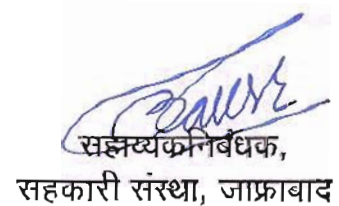 सहाय्यक निबंधक,
सहकारी संस्था, जाफ्राबाद